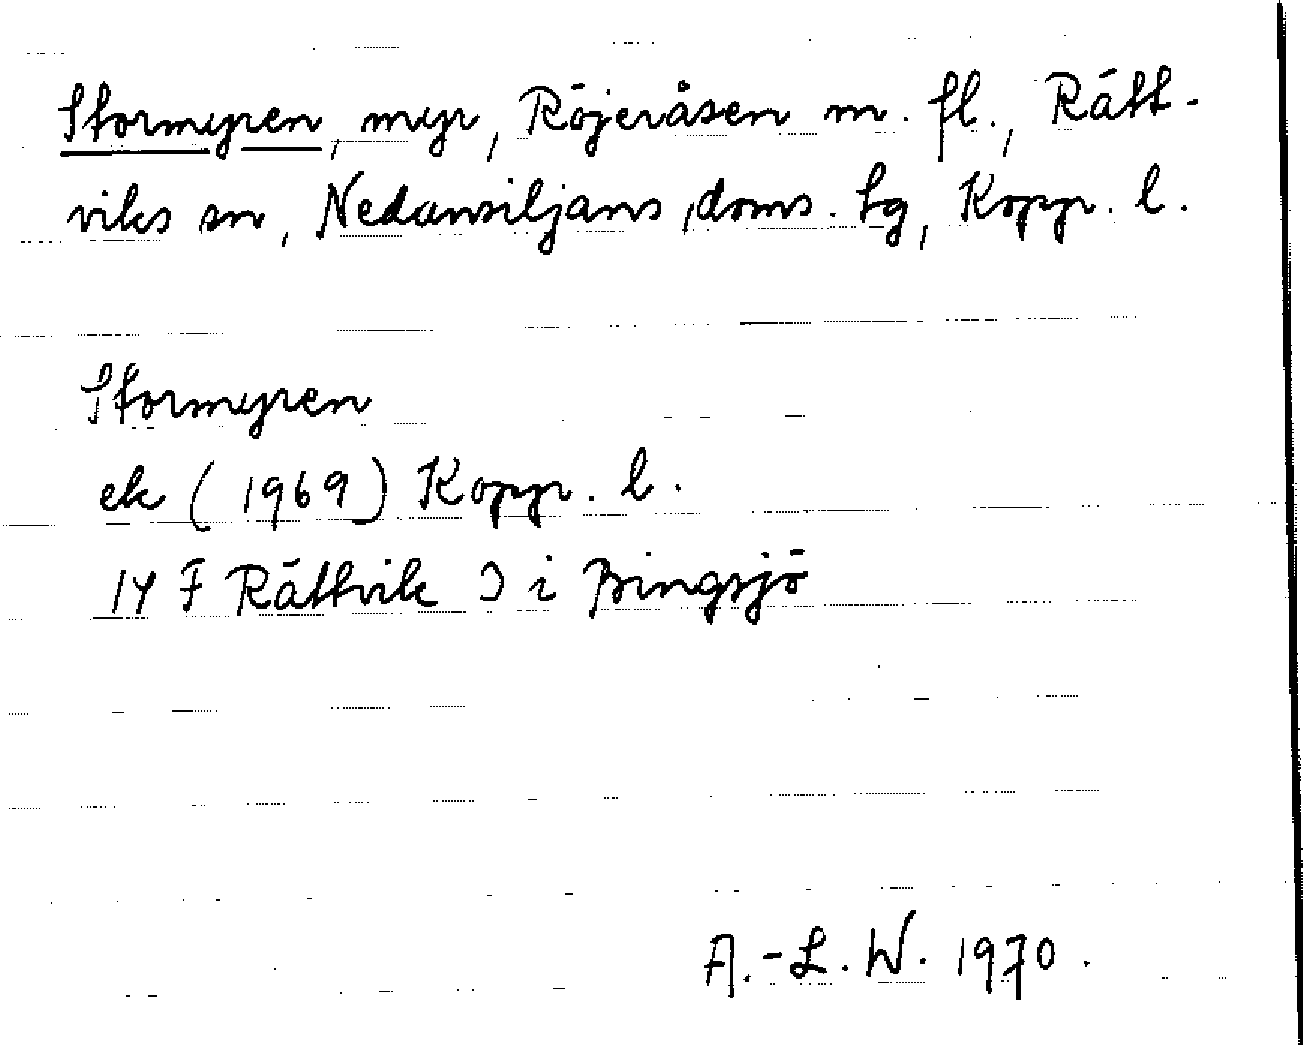 Stormyren, myr, Röjeråsen m. fl., Rätt-
viks sn, Nedansiljans doms. tg, Kopp. l.
Stormyren
ek (1969) Kopp. l.
14 F Rättvik J i Bingsjö
A.-L. W. 1970.